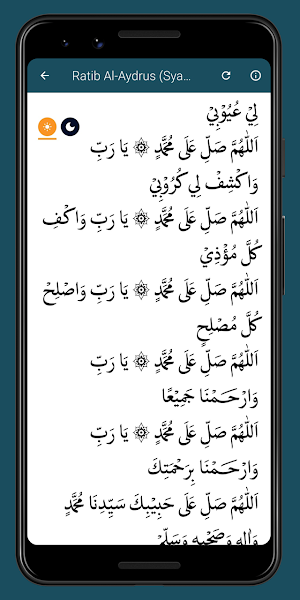 Ratib Al-Aydrus (Sya...
لِيْ عُيُوْبِيْ
اَللّٰهُمَّ صَلِّ عَلَى مُحَمَّدٍ ۞ يَا رَبِّ
وَاكْشِفْ لِي كُرُوْبِيْ
اَللّٰهُمَّ صَلِّ عَلَى مُحَمَّدٍ ۞ يَا رَبِّ وَاكْفِ
كُلَّ مُؤْذِيْ
اَللّٰهُمَّ صَلِّ عَلَى مُحَمَّدٍ ۞ يَا رَبِّ وَاصْلِحْ
كُلَّ مُصْلِحٍ
اَللّٰهُمَّ صَلِّ عَلَى مُحَمَّدٍ ۞ يَا رَبِّ
وَارْحَمْنَا جَمِيْعًا
اَللّٰهُمَّ صَلِّ عَلَى مُحَمَّدٍ ۞ يَا رَبِّ
وَارْحَمْنَا بِرَحْمَتِكَ
اَللّٰهُمَّ صَلِّ عَلَى حَبِيْبِكَ سَيِّدِنَا مُحَمَّدٍ
وَاٰلِهِ وَصَحْبِهِ وَسَلِّمْ